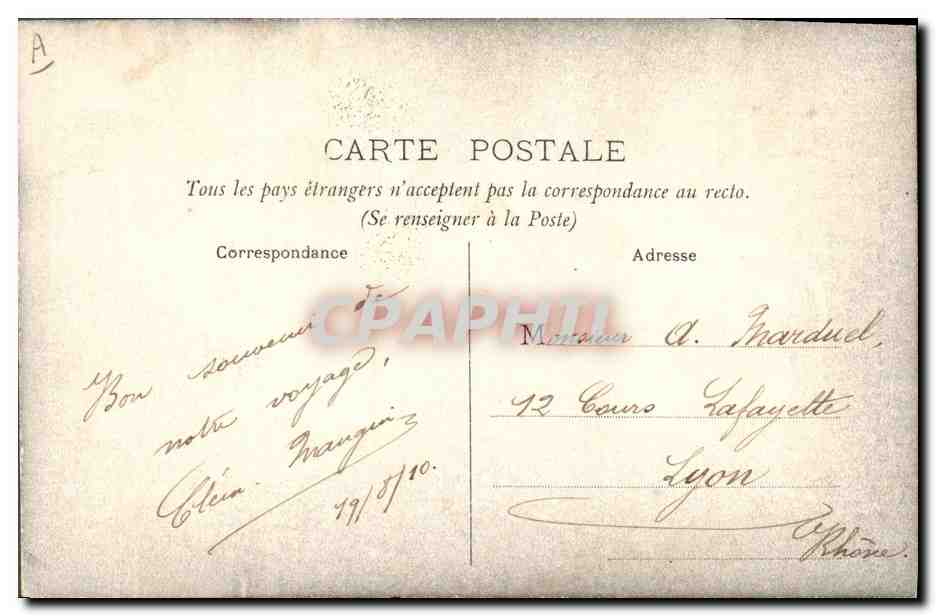 A
CARTE POSTALE
Tous les pays étrangers n'acceptent pas la correspondance au recto.
(Se renseigner à la Poste)
Correspondance
Bon souvenir de
notre voyage,
Clém. Mangin
19/8/10.
Adresse
Monsieur A. Marduel,
12 Cours Lafayette
Lyon
Rhône.
CPAPHIL